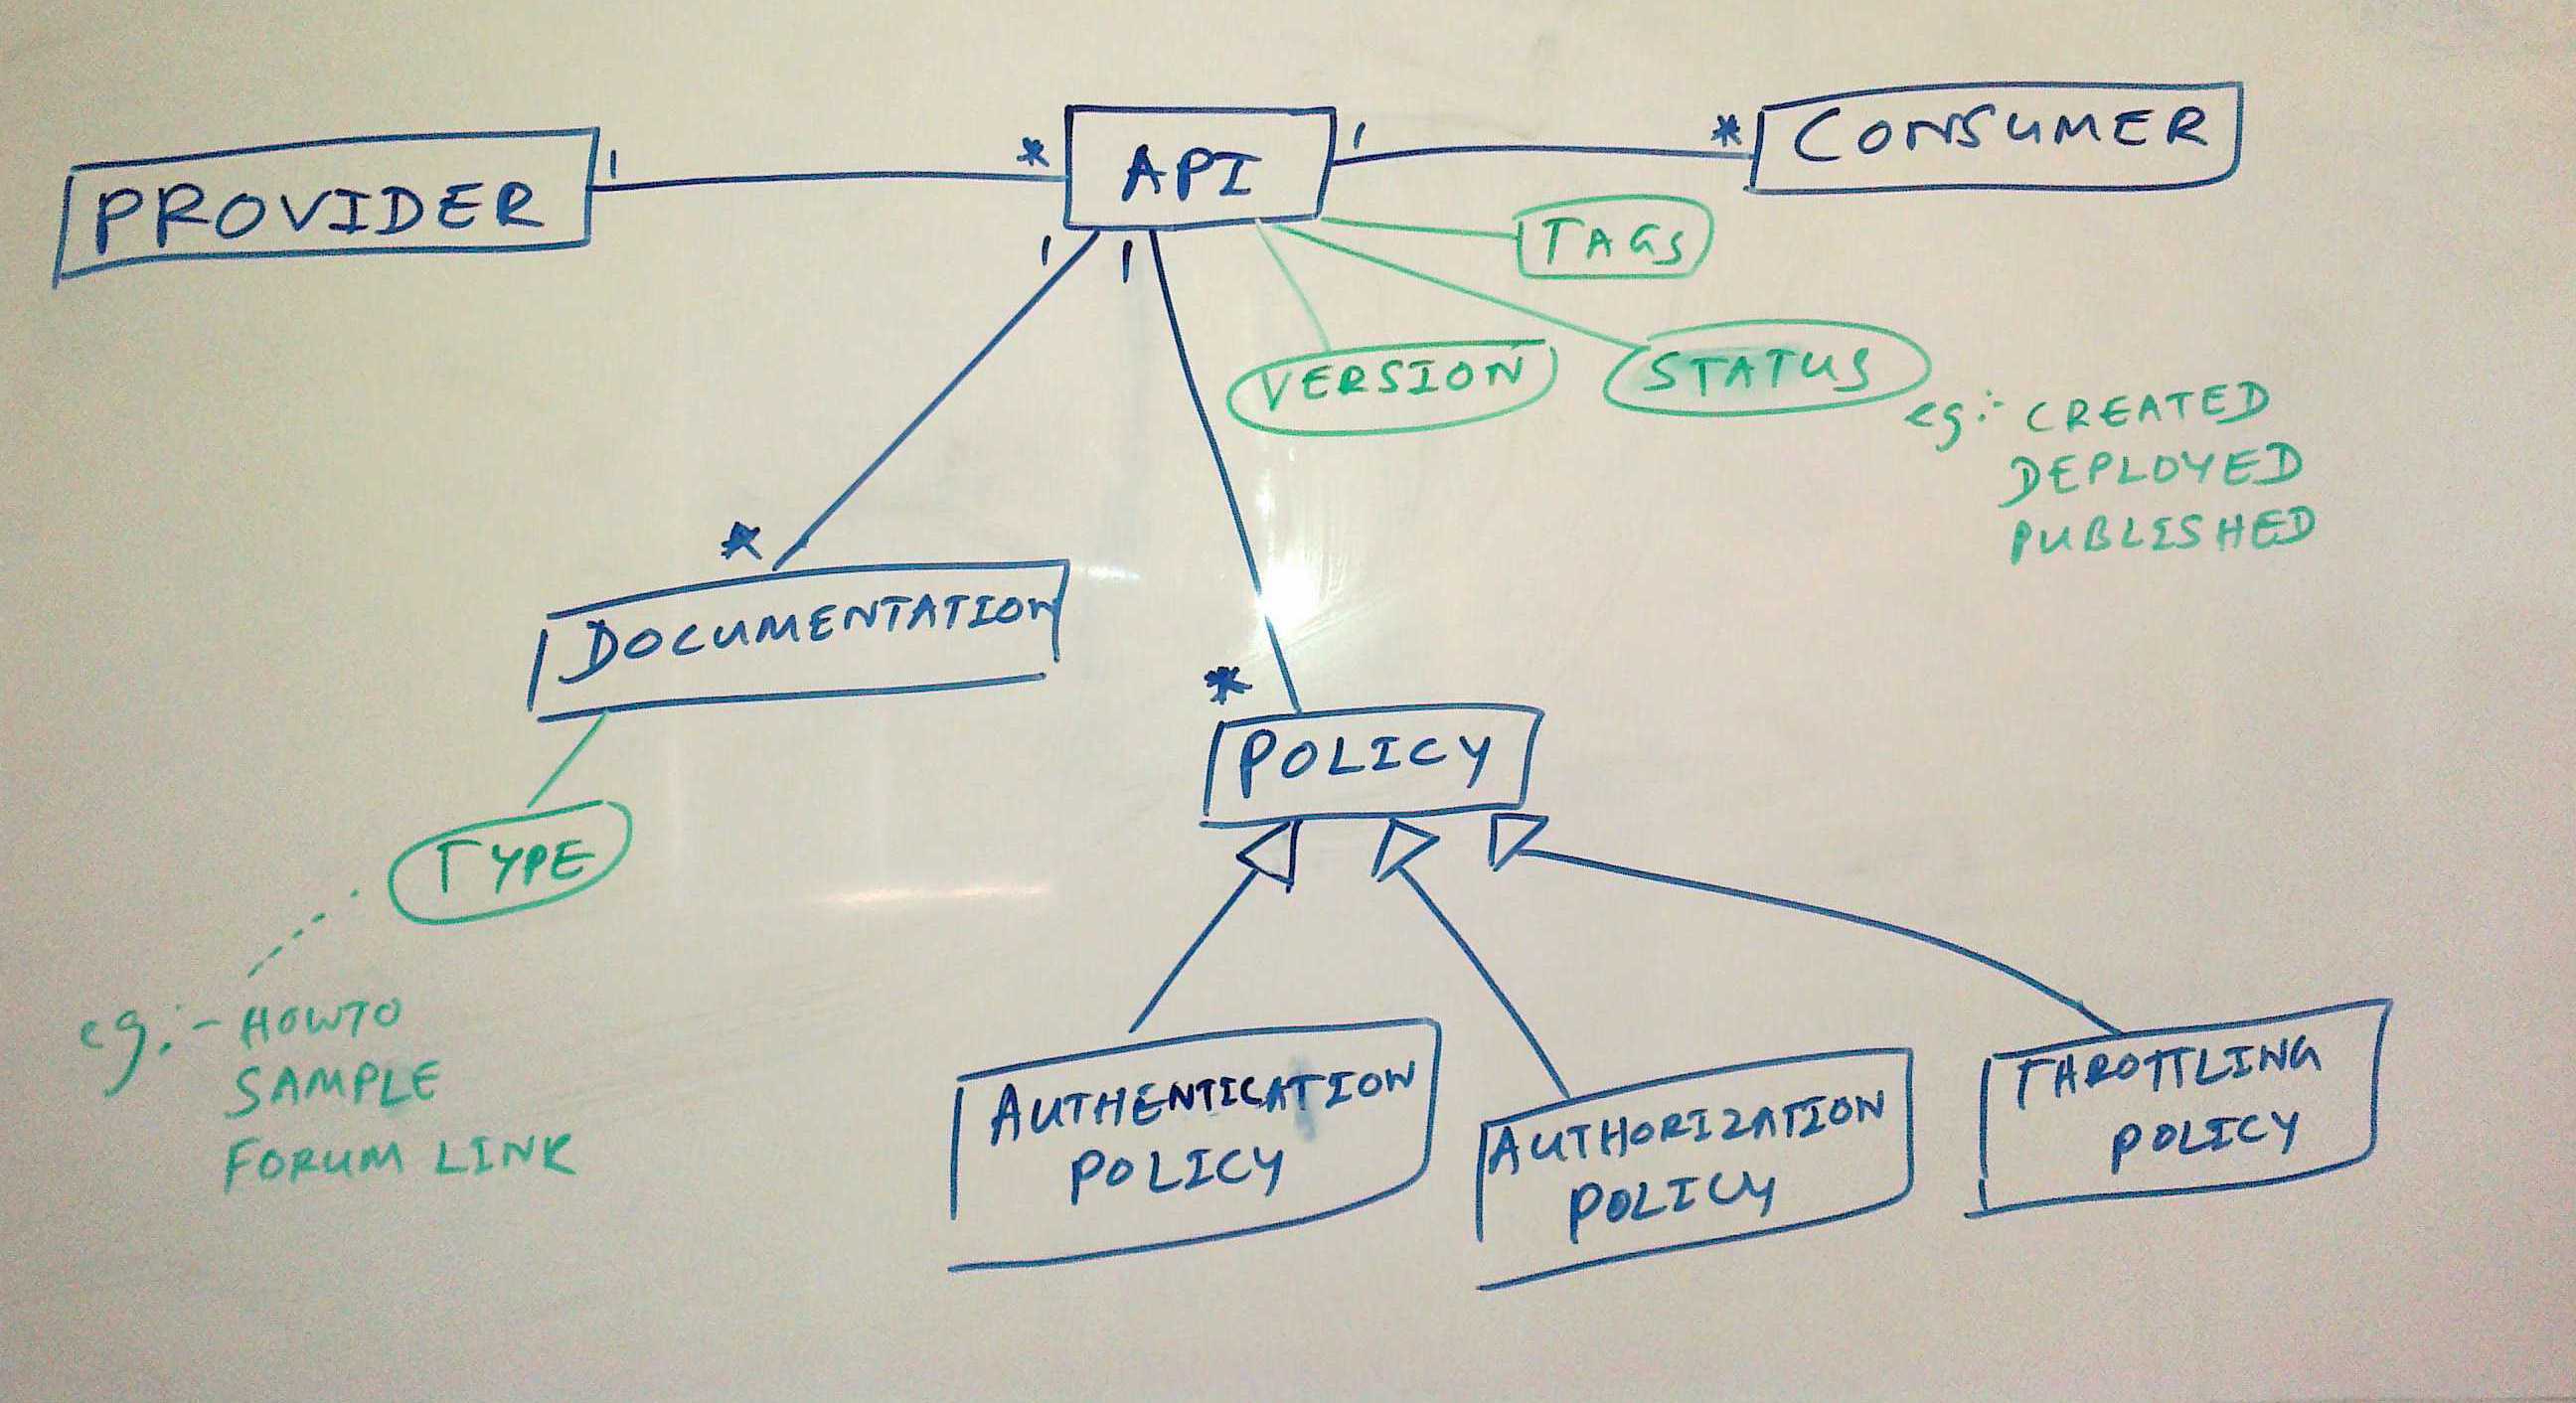 PROVIDER
1
*
API
1
*
CONSUMER
1
1
TAGS
VERSION
STATUS
eg:- CREATED
DEPLOYED
PUBLISHED
*
DOCUMENTATION
*
POLICY
TYPE
eg:- HOWTO
SAMPLE
FORUM LINK
AUTHENTICATION
POLICY
AUTHORIZATION
POLICY
THROTTLING
POLICY